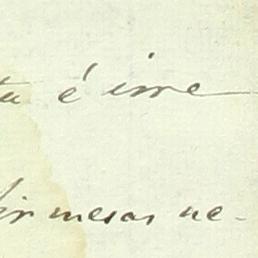 ta é irre
firmesas ne-